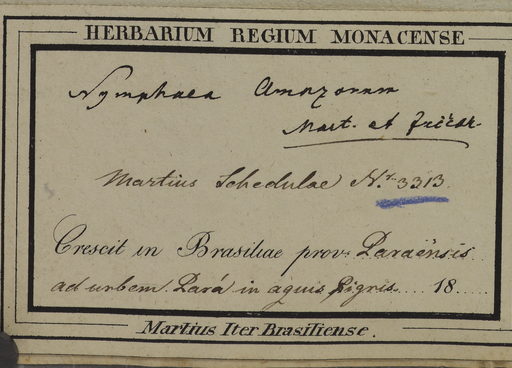 HERBARIUM REGIUM MONACENSE
Nymphaea Amazonum
Mart. et Zuccar.
Martius Schedulae Nr. 3313
Crescit in Brasiliae prov: Paraënsis
ad urbem Pará in aquis pigris.... 18......
Martius Iter Brasiliense.